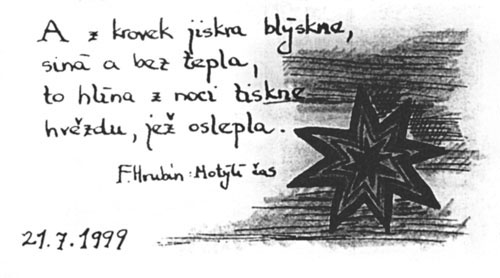 A z krovek jiskra blýskne,
siná a bez tepla,
to hlína z noci tiskne
hvězdu, jež oslepla.
F. Hrubín: Motýlí čas
21.7.1999